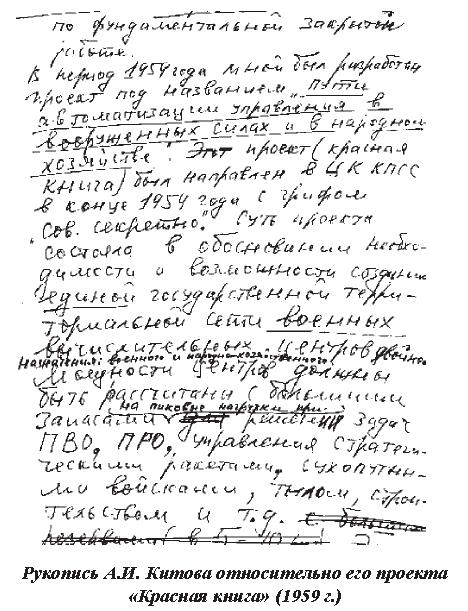 по фундаментальной закрытой
работе.
В период 1959 года мной был разработан
проект под названием „Пути
автоматизации управления в
вооруженных силах и в народном
хозяйстве". Этот проект (красная
книга) был направлен в ЦК КПСС
в конце 1959 года с грифом
"Сов. секретно". Суть проекта
состояла в обосновании необхо-
димости и возможности создания
единой государственной терри-
ториальной сети военных
вычислительных центров двойно
назначения: военного и народно-хозяйственного.
Мощности центров должны
быть рассчитаны с большими
на пиковые нагрузки при
запасами для решении задач
ПВО, ПРО, управления стратеги-
ческими ракетами, сухопутны-
ми войсками, тылом, строи-
тельством и т.д. с большими
резервами (в 5-10
Рукопись А.И. Китова относительно его проекта
«Красная книга» (1959 г.)